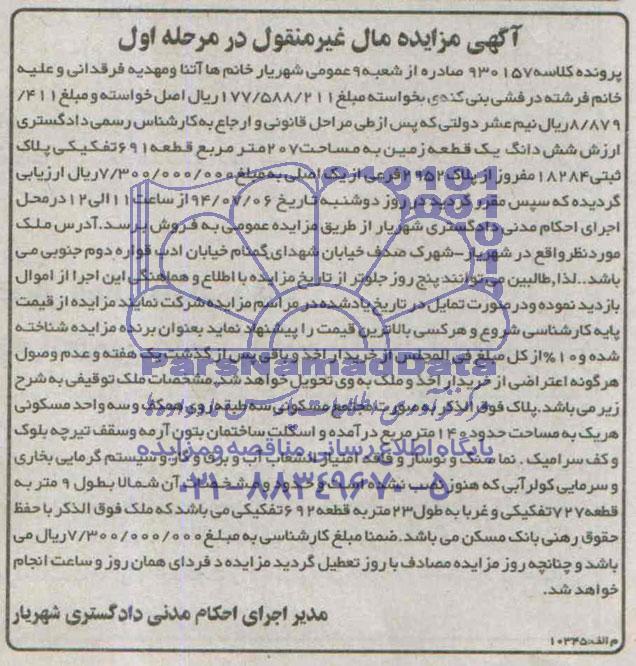 آگهی مزایده مال غیرمنقول در مرحله اول
پرونده کلاسه ۹۳۰۱۵۷ صادره از شعبه ۹ عمومی شهریار خانم ها آتنا ومهدیه فرقدانی و علیه
خانم فرشته درفشی بنی کندی بخواسته مبلغ ۱۷۷/۵۸۸/۲۱۱ ریال اصل خواسته و مبلغ ۴۱۱/
۸/۸۷۹ ریال نیم عشر دولتی که پس از طی مراحل قانونی و ارجاع به کارشناس رسمی دادگستری
ارزش شش دانگ یک قطعه زمین به مساحت ۲۰۷ متر مربع قطعه ۶۹۱ تفکیکی پلاک
ثبتی ۱۸۲۸۴ مفروز از پلاک ۲۹۵۲ فرعی از یک اصلی به مبلغ ۷/۳۰۰/۰۰۰/۰۰۰ ریال ارزیابی
گردیده که سپس مقرر گردید در روز دوشنبه تاریخ ۹۴/۰۷/۰۶ از ساعت ۱۱ الی ۱۲ در محل
اجرای احکام مدنی دادگستری شهریار از طریق مزایده عمومی به فروش برسد. آدرس ملک
موردنظر واقع در شهریار-شهرک صدف خیابان شهدای گمنام خیابان ادب قواره دوم جنوبی می
باشد..لذا, طالبین می توانند پنج روز جلوتر از تاریخ مزایده با اطلاع و هماهنگی این اجرا از اموال
بازدید نموده ودرصورت تمایل در تاریخ یادشده در مراسم مزایده شرکت نمایند مزایده از قیمت
پایه کارشناسی شروع و هرکسی بالاترین قیمت را پیشنهاد نماید بعنوان برنده مزایده شناخته
شده و ۱۰% از کل مبلغ فی المجلس از خریدار اخذ و باقی پس از گذشت یک هفته و عدم وصول
هرگونه اعتراضی از خریدار اخذ و ملک به وی تحویل خواهد شد. مشخصات ملک توقیفی به شرح
زیر می باشد. پلاک فوق الذکر به صورت مجتمع مسکونی سه طبقه روی همکف و سه واحد مسکونی
هریک به مساحت حدود ۱۴۰ متر مربع درآمده و اسکلت ساختمان بتون آرمه وسقف تیرچه بلوک
و کف سرامیک . نما سنگ و نوساز و فاقد امتیاز انشعاب آب و برق و گاز و سیستم گرمایی بخاری
و سرمایی کولرآبی که هنوز نصب نشده است و حدود و مشخصات آن شمالا بطول ۹ متر به
قطعه ۷۲۷ تفکیکی و غربا به طول ۲۳ متر به قطعه ۶۹۲ تفکیکی می باشد که ملک فوق الذکر با حفظ
حقوق رهنی بانک مسکن می باشد. ضمنا مبلغ کارشناسی به مبلغ ۷/۳۰۰/۰۰۰/۰۰۰ ریال می
باشد و چنانچه روز مزایده مصادف با روز تعطیل گردید مزایده د فردای همان روز و ساعت انجام
خواهد شد.
مدیر اجرای احکام مدنی دادگستری شهریار
م الف: ۱۰۳۴۵
ParsNamadData
پایگاه اطلاع رسانی مناقصه و مزایده
۰۲۱-۸۸۳۴۹۶۷۰-۵